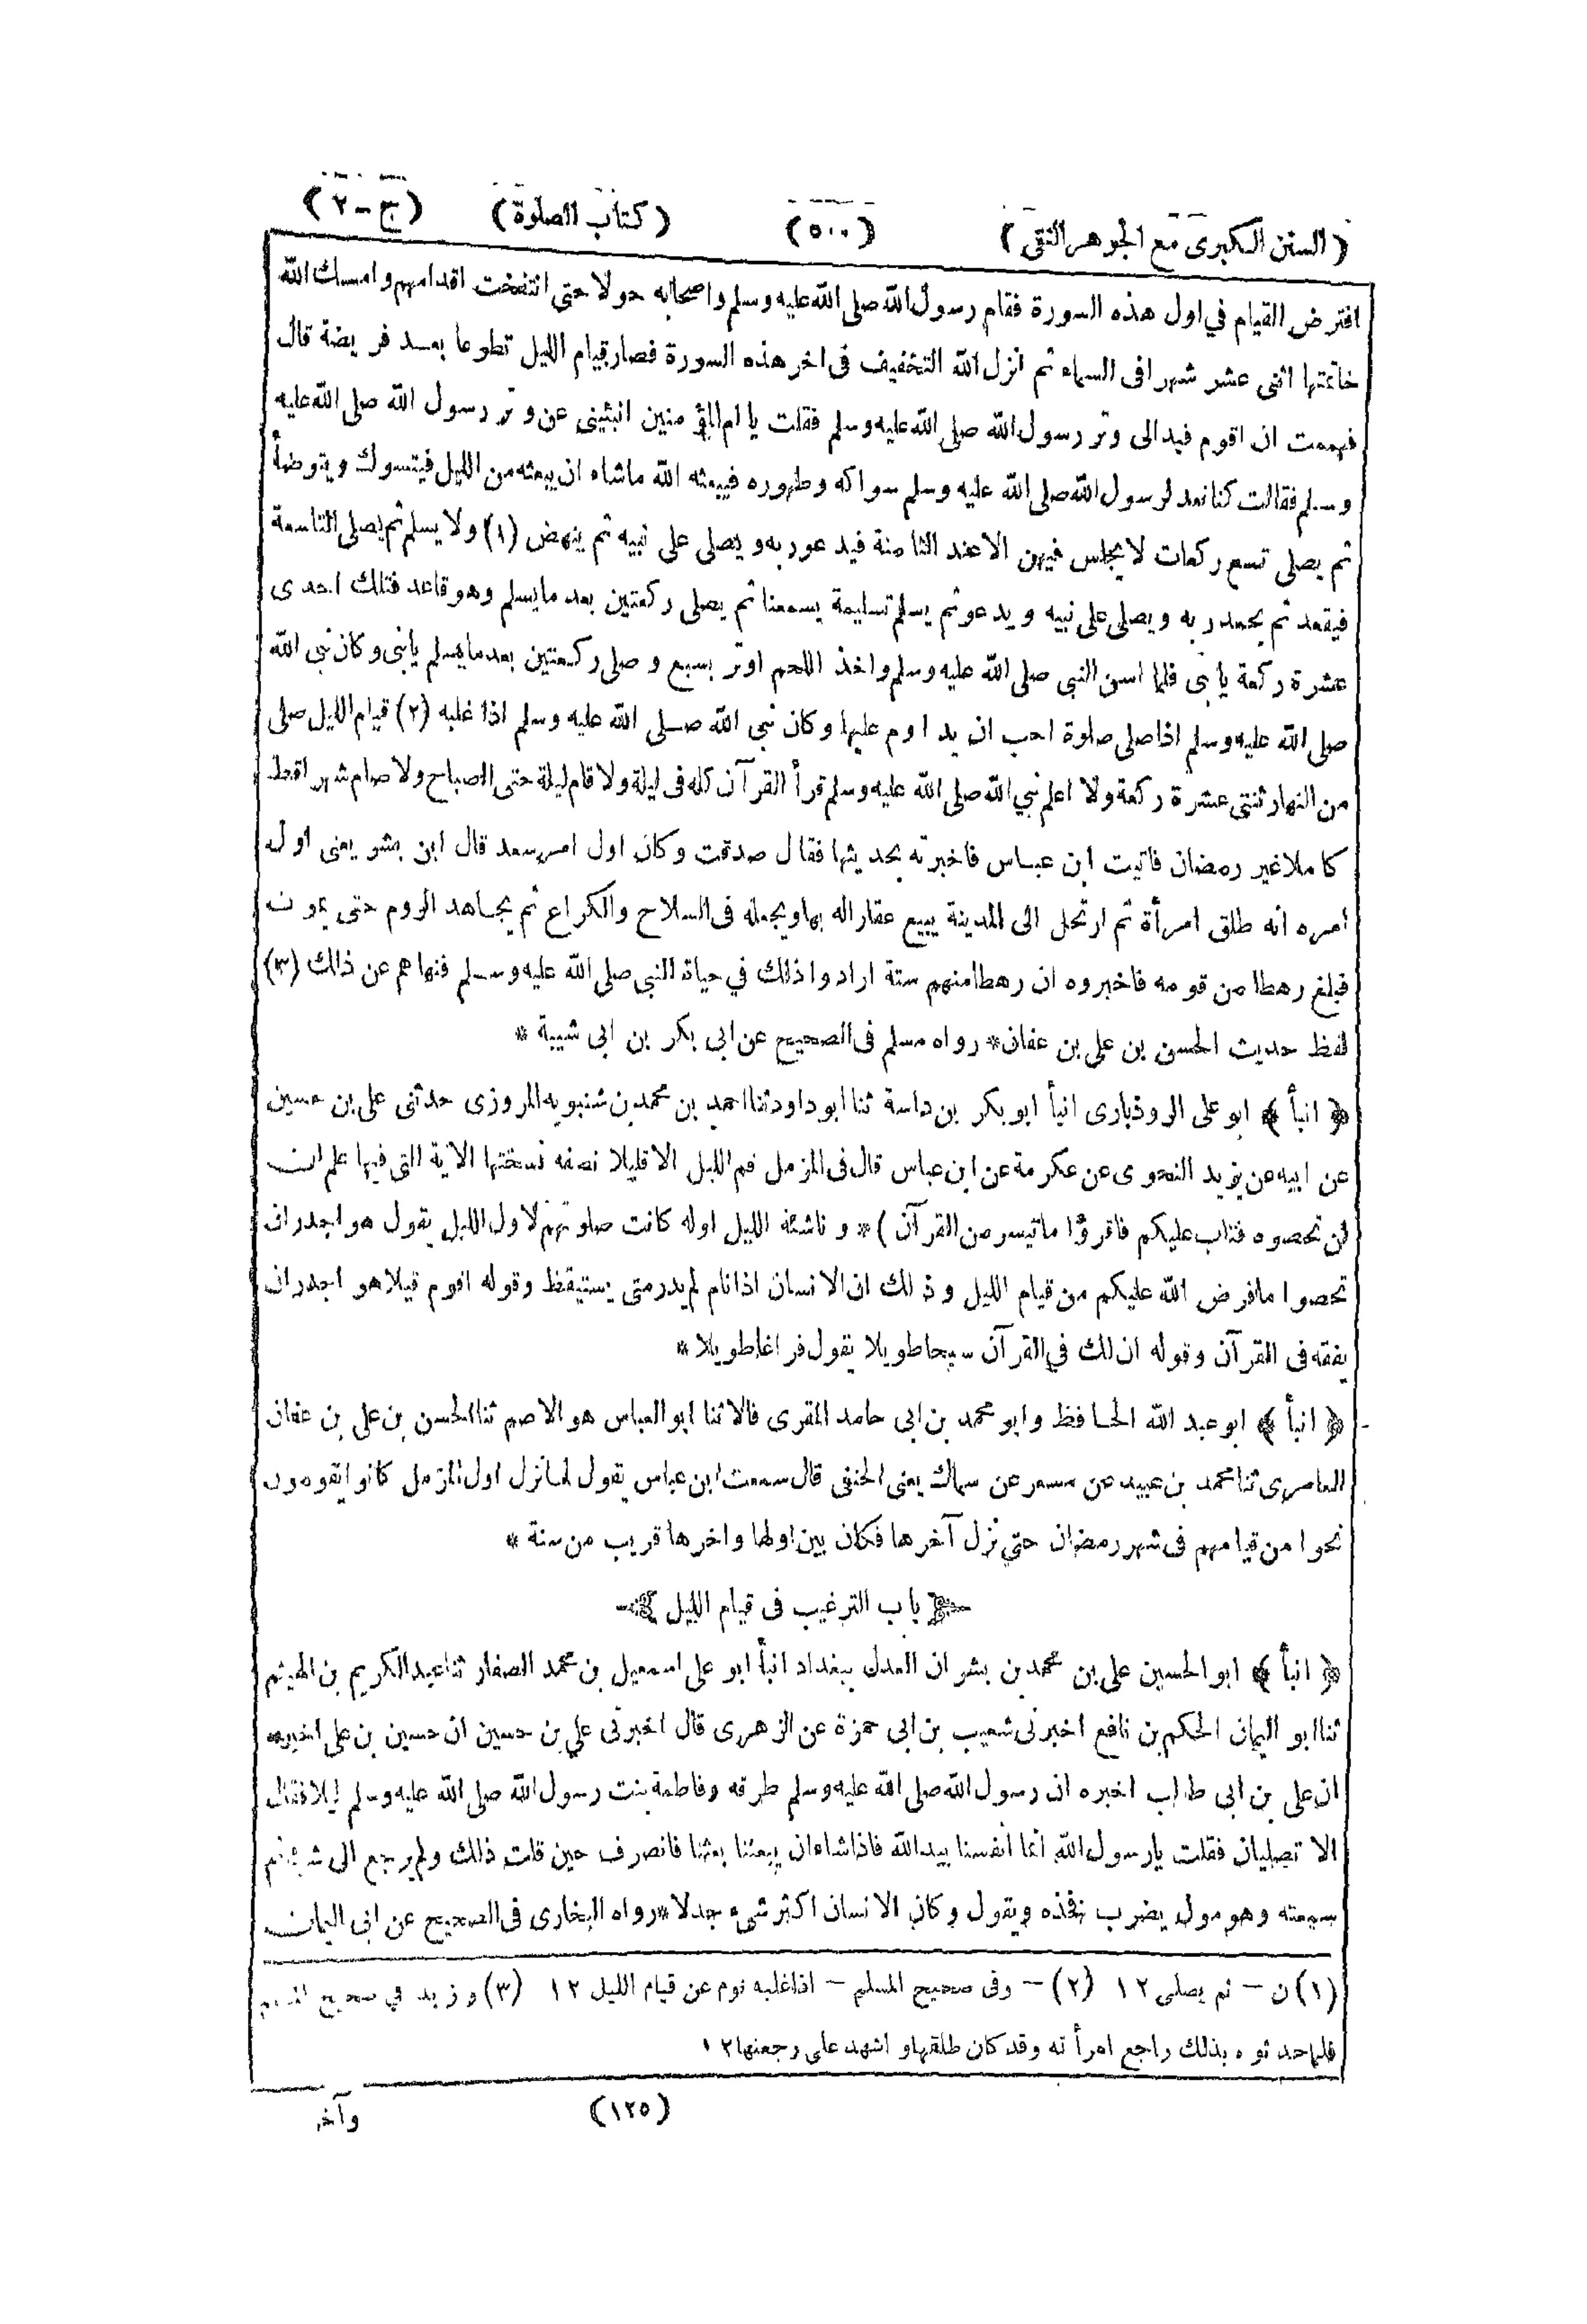 (السنن الكبرى مع الجوهر النقى) (٥٠٠) (كتاب الصلوة) (ج-٢)
افترض القيام في اول هذه السورة فقام رسول الله صلى الله عليه وسلم واصحابه حولا حتى انتفخت اقدامهم وامسك الله
خاتمتها اثنى عشر شهرا فى السماء ثم انزل الله التخفيف فى اخر هذه السورة فصار قيام الليل تطوعا بعد فريضة قال
فهممت ان اقوم فبدالى وتر رسول الله صلى الله عليه وسلم فقلت يا ام المؤمنين انبئينى عن وتر رسول الله صلى الله عليه
وسلم فقالت كنا نعد لرسول الله صلى الله عليه وسلم سواكه وطهوره فيبعثه الله ماشاء ان يبعثه من الليل فيتسوك ويتوضأ
ثم يصلى تسع ركعات لا يجلس فيهن الا عند الثامنة فيدعو ربه ويصلى على نبيه ثم ينهض (١) ولا يسلم ثم يصلى التاسعة
فيقعد ثم يحمد ربه ويصلى على نبيه ويدعو ثم يسلم تسليمة يسمعنا ثم يصلى ركعتين بعد ما يسلم وهو قاعد فتلك احدى
عشرة ركعة يا بنى فلما اسن النبى صلى الله عليه وسلم واخذ اللحم اوتر بسبع وصلى ركعتين بعد ما يسلم يا بنى وكان نبى الله
صلى الله عليه وسلم اذا صلى صلوة احب ان يداوم عليها وكان نبى الله صلى الله عليه وسلم اذا غلبه (٢) قيام الليل صلى
من النهار ثنتى عشرة ركعة ولا اعلم نبي الله صلى الله عليه وسلم قرأ القرآن كله فى ليلة ولا قام ليلة حتى الصباح ولا صام شهرا قط
كاملا غير رمضان فاتيت ابن عباس فاخبرته بحديثها فقال صدقت وكان اول امر سعد قال ابن بشر يعنى اول
امره انه طلق امرأة ثم ارتحل الى المدينة يبيع عقارا له بها ويجعله فى السلاح والكراع ثم يجاهد الروم حتى يموت
فبلغ رهطا من قومه فاخبروه ان رهطا منهم ستة ارادوا ذلك في حياة النبى صلى الله عليه وسلم فنهاهم عن ذلك (٣)
لفظ حديث الحسن بن على بن عفان* رواه مسلم فى الصحيح عن ابى بكر بن ابى شيبة *
﴿ انبأ ﴾ ابو على الروذبارى انبأ ابو بكر بن داسة ثنا ابو داود ثنا احمد بن محمد بن شنبويه المروزى حدثنى على بن حسين
عن ابيه عن يزيد النحوى عن عكرمة عن ابن عباس قال فى المزمل قم الليل الا قليلا نصفه نسختها الآية التى فيها علم ان
لن تحصوه فتاب عليكم فاقرؤا ما تيسر من القرآن )* وناشئة الليل اوله كانت صلوتهم لاول الليل يقول هو اجدر ان
تحصوا ما فرض الله عليكم من قيام الليل وذلك ان الانسان اذا نام لم يدر متى يستيقظ وقوله اقوم قيلا هو اجدر ان
يفقه فى القرآن وقوله ان لك في القرآن سبحا طويلا يقول فراغا طويلا *
﴿ انبأ ﴾ ابو عبد الله الحافظ وابو محمد بن ابى حامد المقرى قالا ثنا ابو العباس هو الاصم ثنا الحسن بن على بن عفان
العامرى ثنا محمد بن عبيد عن مسعر عن سماك يعنى الحنفى قال سمعت ابن عباس يقول لما نزل اول المزمل كانوا يقومون
نحوا من قيامهم فى شهر رمضان حتي نزل آخرها فكان بين اولها واخرها قريب من سنة *
باب الترغيب فى قيام الليل
﴿ انبأ ﴾ ابو الحسين على بن محمد بن بشران العدل ببغداد انبأ ابو على اسمعيل بن محمد الصفار ثنا عبد الكريم بن الهيثم
ثنا ابو اليمان الحكم بن نافع اخبرنى شعيب بن ابى حمزة عن الزهرى قال اخبرنى علي بن حسين ان حسين بن على اخبره
ان على بن ابى طالب اخبره ان رسول الله صلى الله عليه وسلم طرقه وفاطمة بنت رسول الله صلى الله عليه وسلم ليلا فقال
الا تصليان فقلت يا رسول الله انما انفسنا بيد الله فاذا شاء ان يبعثنا بعثنا فانصرف حين قلت ذلك ولم يرجع الى شيئا ثم
سمعته وهو مول يضرب فخذه ويقول وكان الانسان اكثر شىء جدلا* رواه البخارى فى الصحيح عن ابى اليمان
(١) ن - ثم يصلى ١٢ (٢) - وفى صحيح المسلم - اذا غلبه نوم عن قيام الليل ١٢ (٣) وزيد في صحيح
فلما حدثوه بذلك راجع امرأته وقد كان طلقها واشهد على رجعتها ١٢
(١٢٥) وآخر